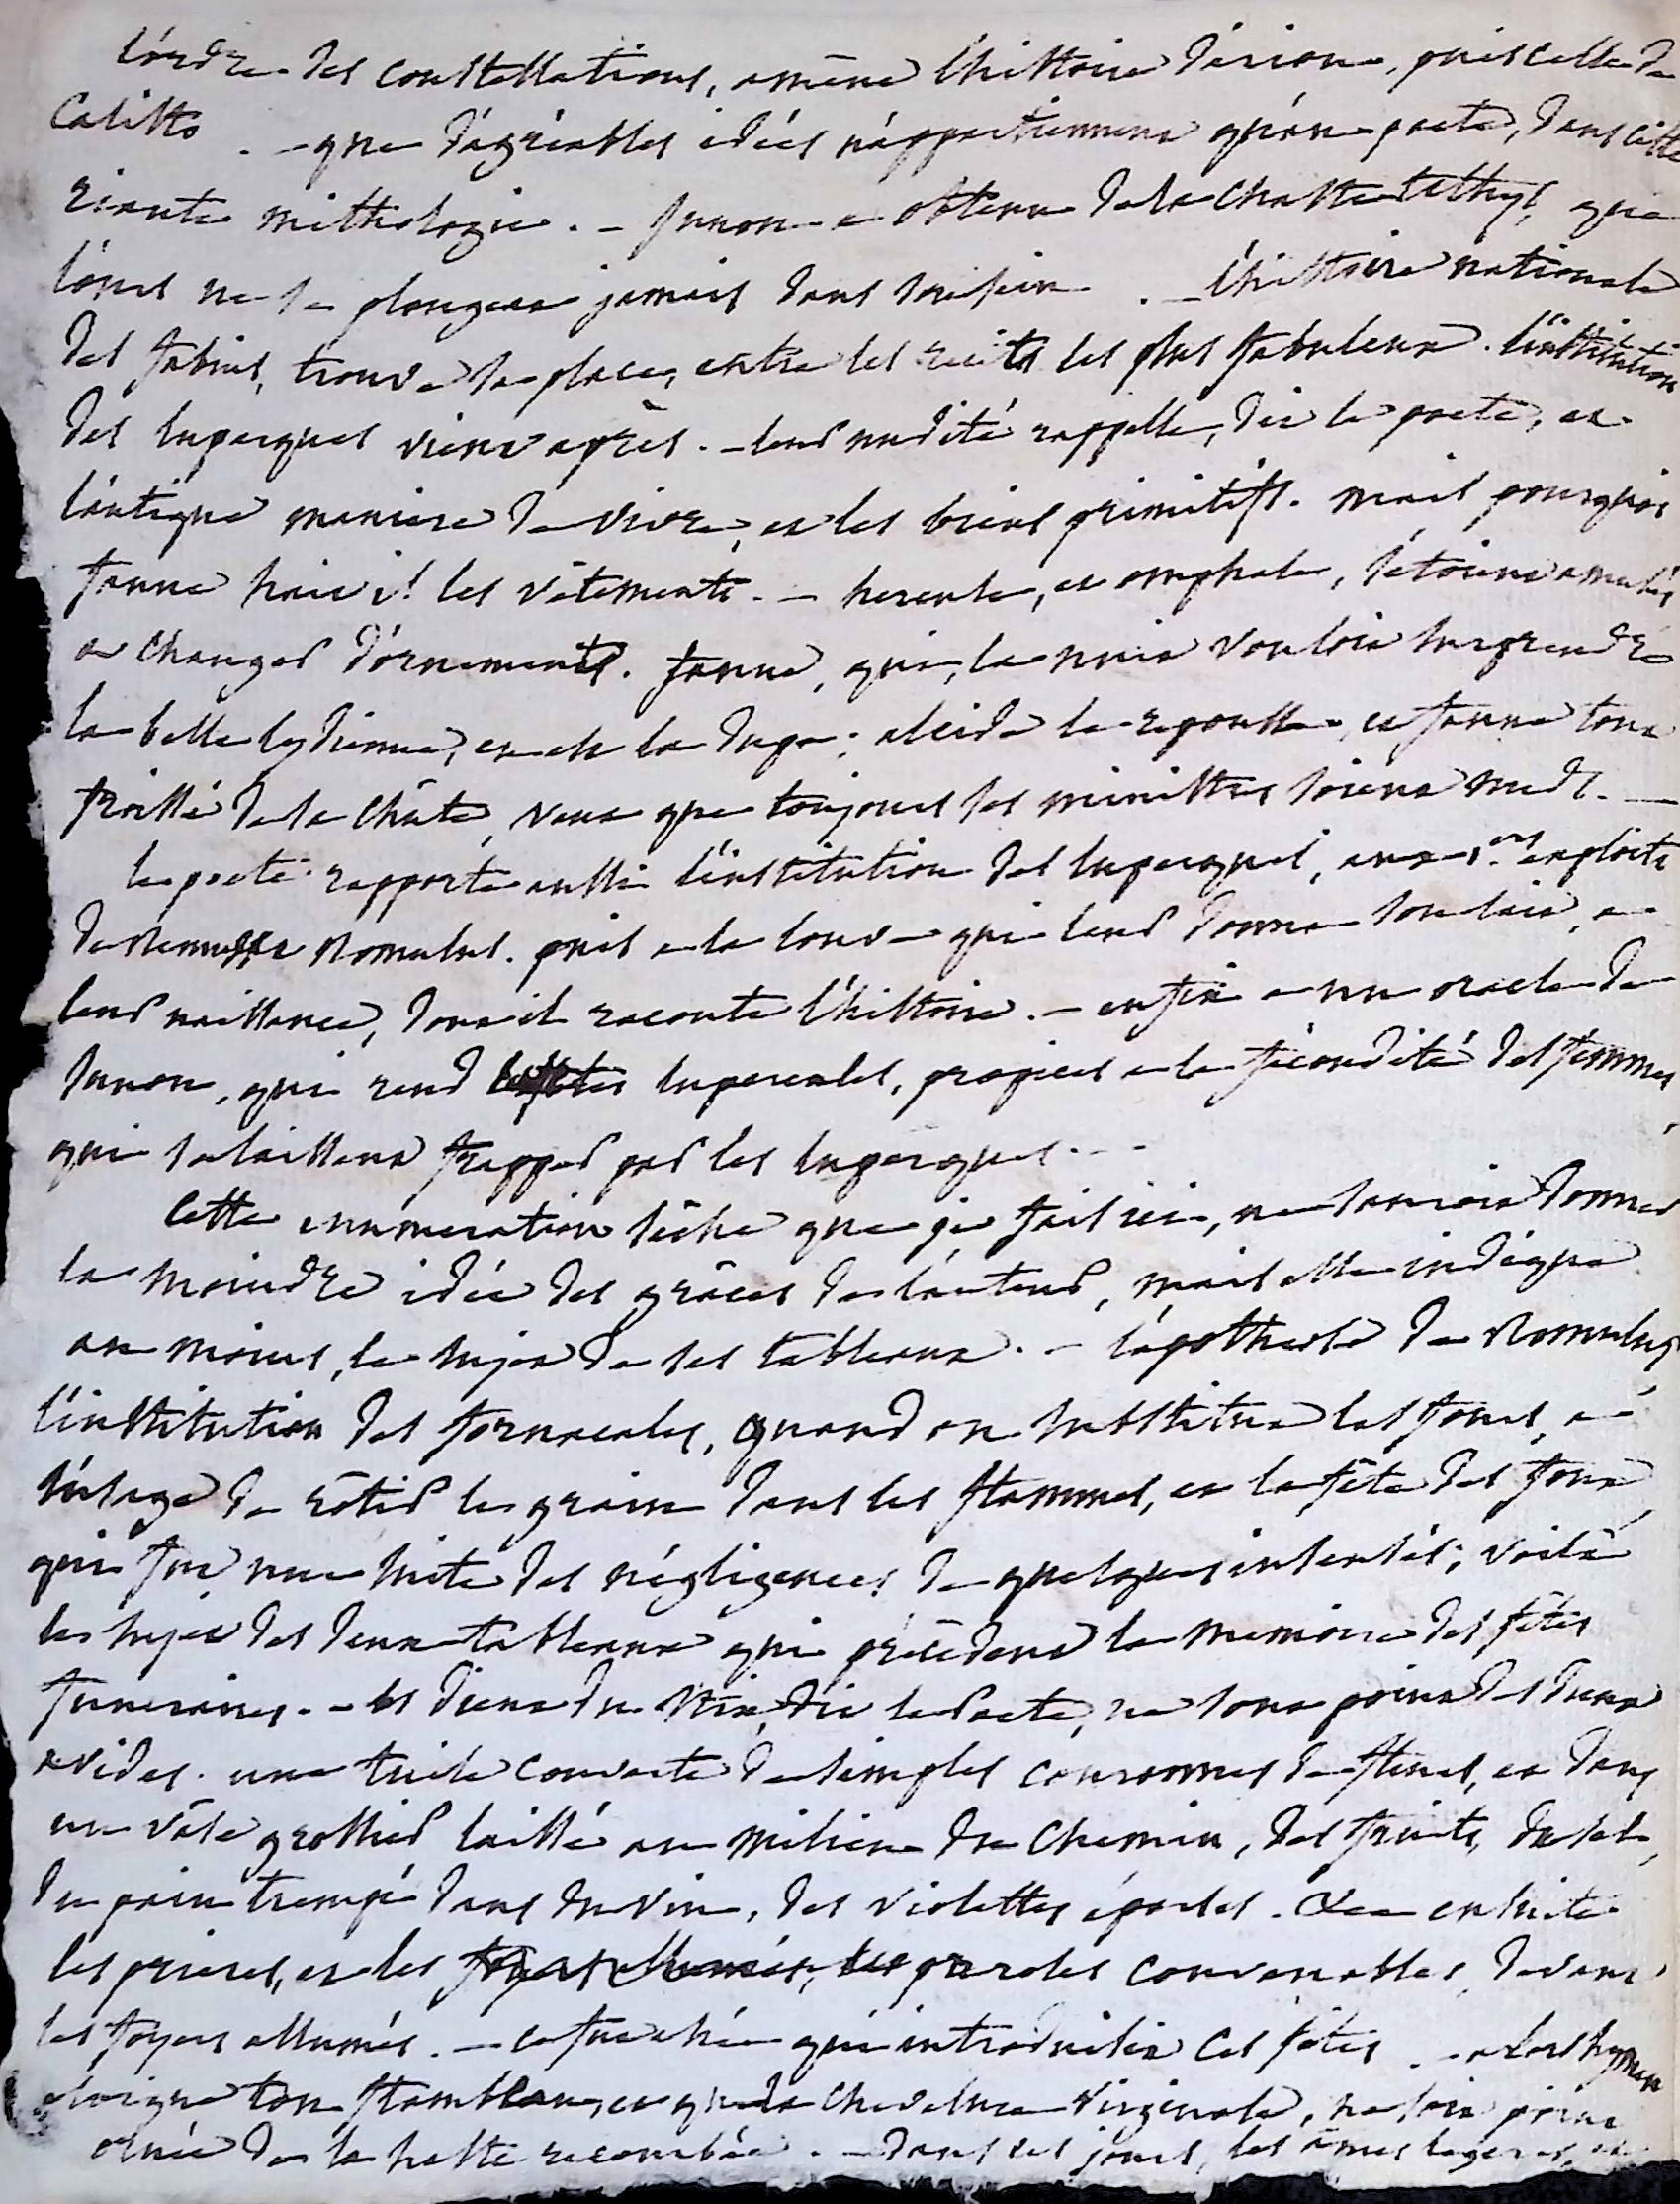 l'ordre des constellations, amène l'histoire d'arion, puis celle de
Calisto . - que d'agréables idées n'appartiennent qu'au poete, dans cette
riante mithologie. - Junon a obtenu de la chaste tethys, que
l'ours ne se plongera jamais dans son sein . - l'histoire nationale
des fabius, trouve sa place, entre les récits les plus fabuleux. l'institution
des luperques vient après. - leur nudité rappelle, dit le poete, et
l'antique maniere de vivre, et les biens primitifs. mais pourquoi
faune hait-il les vêtements. - hercule, et omphale, s'étoient amusés
a changer d'ornements. faune, qui, la nuit vouloit surprendre
la belle lydienne, en est la dupe; alcide le repousse, et faune tout
froissé de sa chûte, veut que toujours ses ministres soient nuds. -
le poete rapporte aussi l'institution des luperques, aux 1ers exploits
de Remus et Romulus. puis a la louve qui leur donna son lait, a
leur naissance, dont il raconte l'histoire. - enfin a un oracle de
Junon, qui rend les lupercales, propices a la fécondité des femmes
qui se laissent frapper par les luperques. - -
Cette enumeration sèche que je fais ici, ne sauroit donner
la moindre idée des grâces de l'auteur, mais elle indique
au moins, le sujet de ses tableaux. - l'apothéose de Romulus
l'institution des fornacales, quand on substitua les fours, a
l'usage de rôtir le grain dans les flammes, et la fête des fous,
qui fut une suite des négligences de quelques insensés; voilà
les sujets des deux tableaux qui précedent la memoire des fêtes
funeraires. - les dieux du Stix, dit le Poete, ne sont point des dieux
avides. une tuile couverte de simples couronnes de fleurs, et dans
un vase grossier laissé au milieu du chemin, des fruits, du sel,
du pain trempé dans du vin, des violettes éparses. ensuite
les prieres, et les paroles convenables, devant
les foyers allumés. - ce fut enée qui introduisit ces fêtes . - alors hymen
eloigne ton flambeau, et que la chevelure virginale, ne soit point
ornée de la haste recourbée. - dans ces jours, les âmes legeres, et